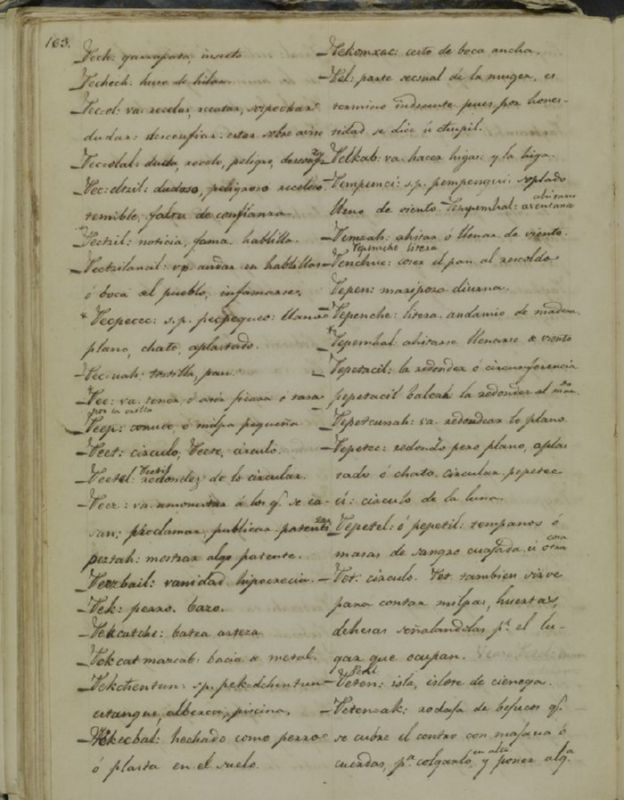 163.
Pech: garrapata, insecto
Pechech: huso de hilar.
Pec.ol: va. recelar, recatar, sospechar
dudar: desconfiar: estar sobre aviso
Pec.olal: duda, recelo, peligro, desconfza
Pec:olzil: dudoso, peligroso receloso
temible, falta de confianza.
Pectzil: noticia, fama, hablilla.
Pectzilanal: vp. andar en hablillas
ó boca del pueblo, infamarse,
* Pecpecec: s.p. pecpequec: llano
plano, chato, aplastado.
Pec-uah: tortilla, pan.
por la orilla
Peep: convuc ó milpa pequeña
Peet: circulo, Peete, circulo.
Peetel Peetil redondez de lo circular.
Peez: va. amonestar á los q. se ca-
san; proclamar, publicar, patentizar
peztah: mostrar algo patente.
Peezbail: vanidad hipocrecia.
Pek: perro. bazo.
Pekcatche: batea artesa
Pekcat mazcab: bacia de metal.
Pekchentun: s.p. pek-dchentun
estanque, alberca, piscina.
Pekecbal: hechado como perro
ó plasta en el suelo.
Pekomxac: cesto de boca ancha.
Pel: parte secsual de la muger, es
termino indesente pues por hones-
tidad se dice ú chupil.
Pelkab: va. hacer higas: y la higa.
Pempenci: s.p. pempenqui: soplado
lleno de viento Penpembal: ahitarse aventarse
Pemzah: ahitar ó llenar de viento.
Pepenche litera
Penchuc: coser el pan al rescoldo
Pepen: mariposa diurna.
Pepenche: litera. andamio de madera
Pepembal ahitarse llenarse de viento
Pepetacil: la redondez ó circunsferencia
pepetacil balcah la redondez del mdo
Pepetcunah: va. redondear lo plano
Pepetec: redondo pero plano, aplas
tado ó chato, circular. pepetec
ci: circulo de la luna.
Pepetel: ó pepetil: tempanos ó
masas de sangre cuajada, ú otra cosa
Pet: circulo. Pet tambien sirve
para contar milpas, huertas,
dehesas señalandolas pr. el lu-
gar que ocupan.
Peten: isla, islote de cienega
Peten-ak: rodaja de bejucos q.
se cubre el centro con majagua ó
cuerdas, pa. colgarlo en alto, y poner alga.